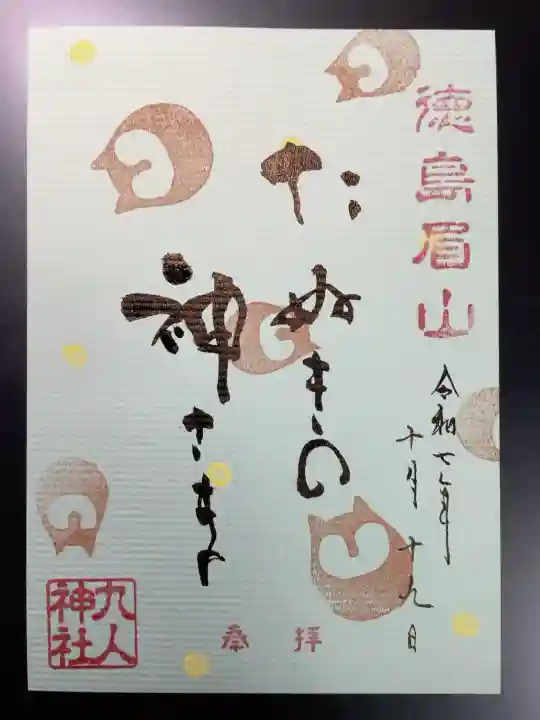 徳島眉山
令和七年
十月十九日
たぬきの
神さま
奉拝
九人
神社